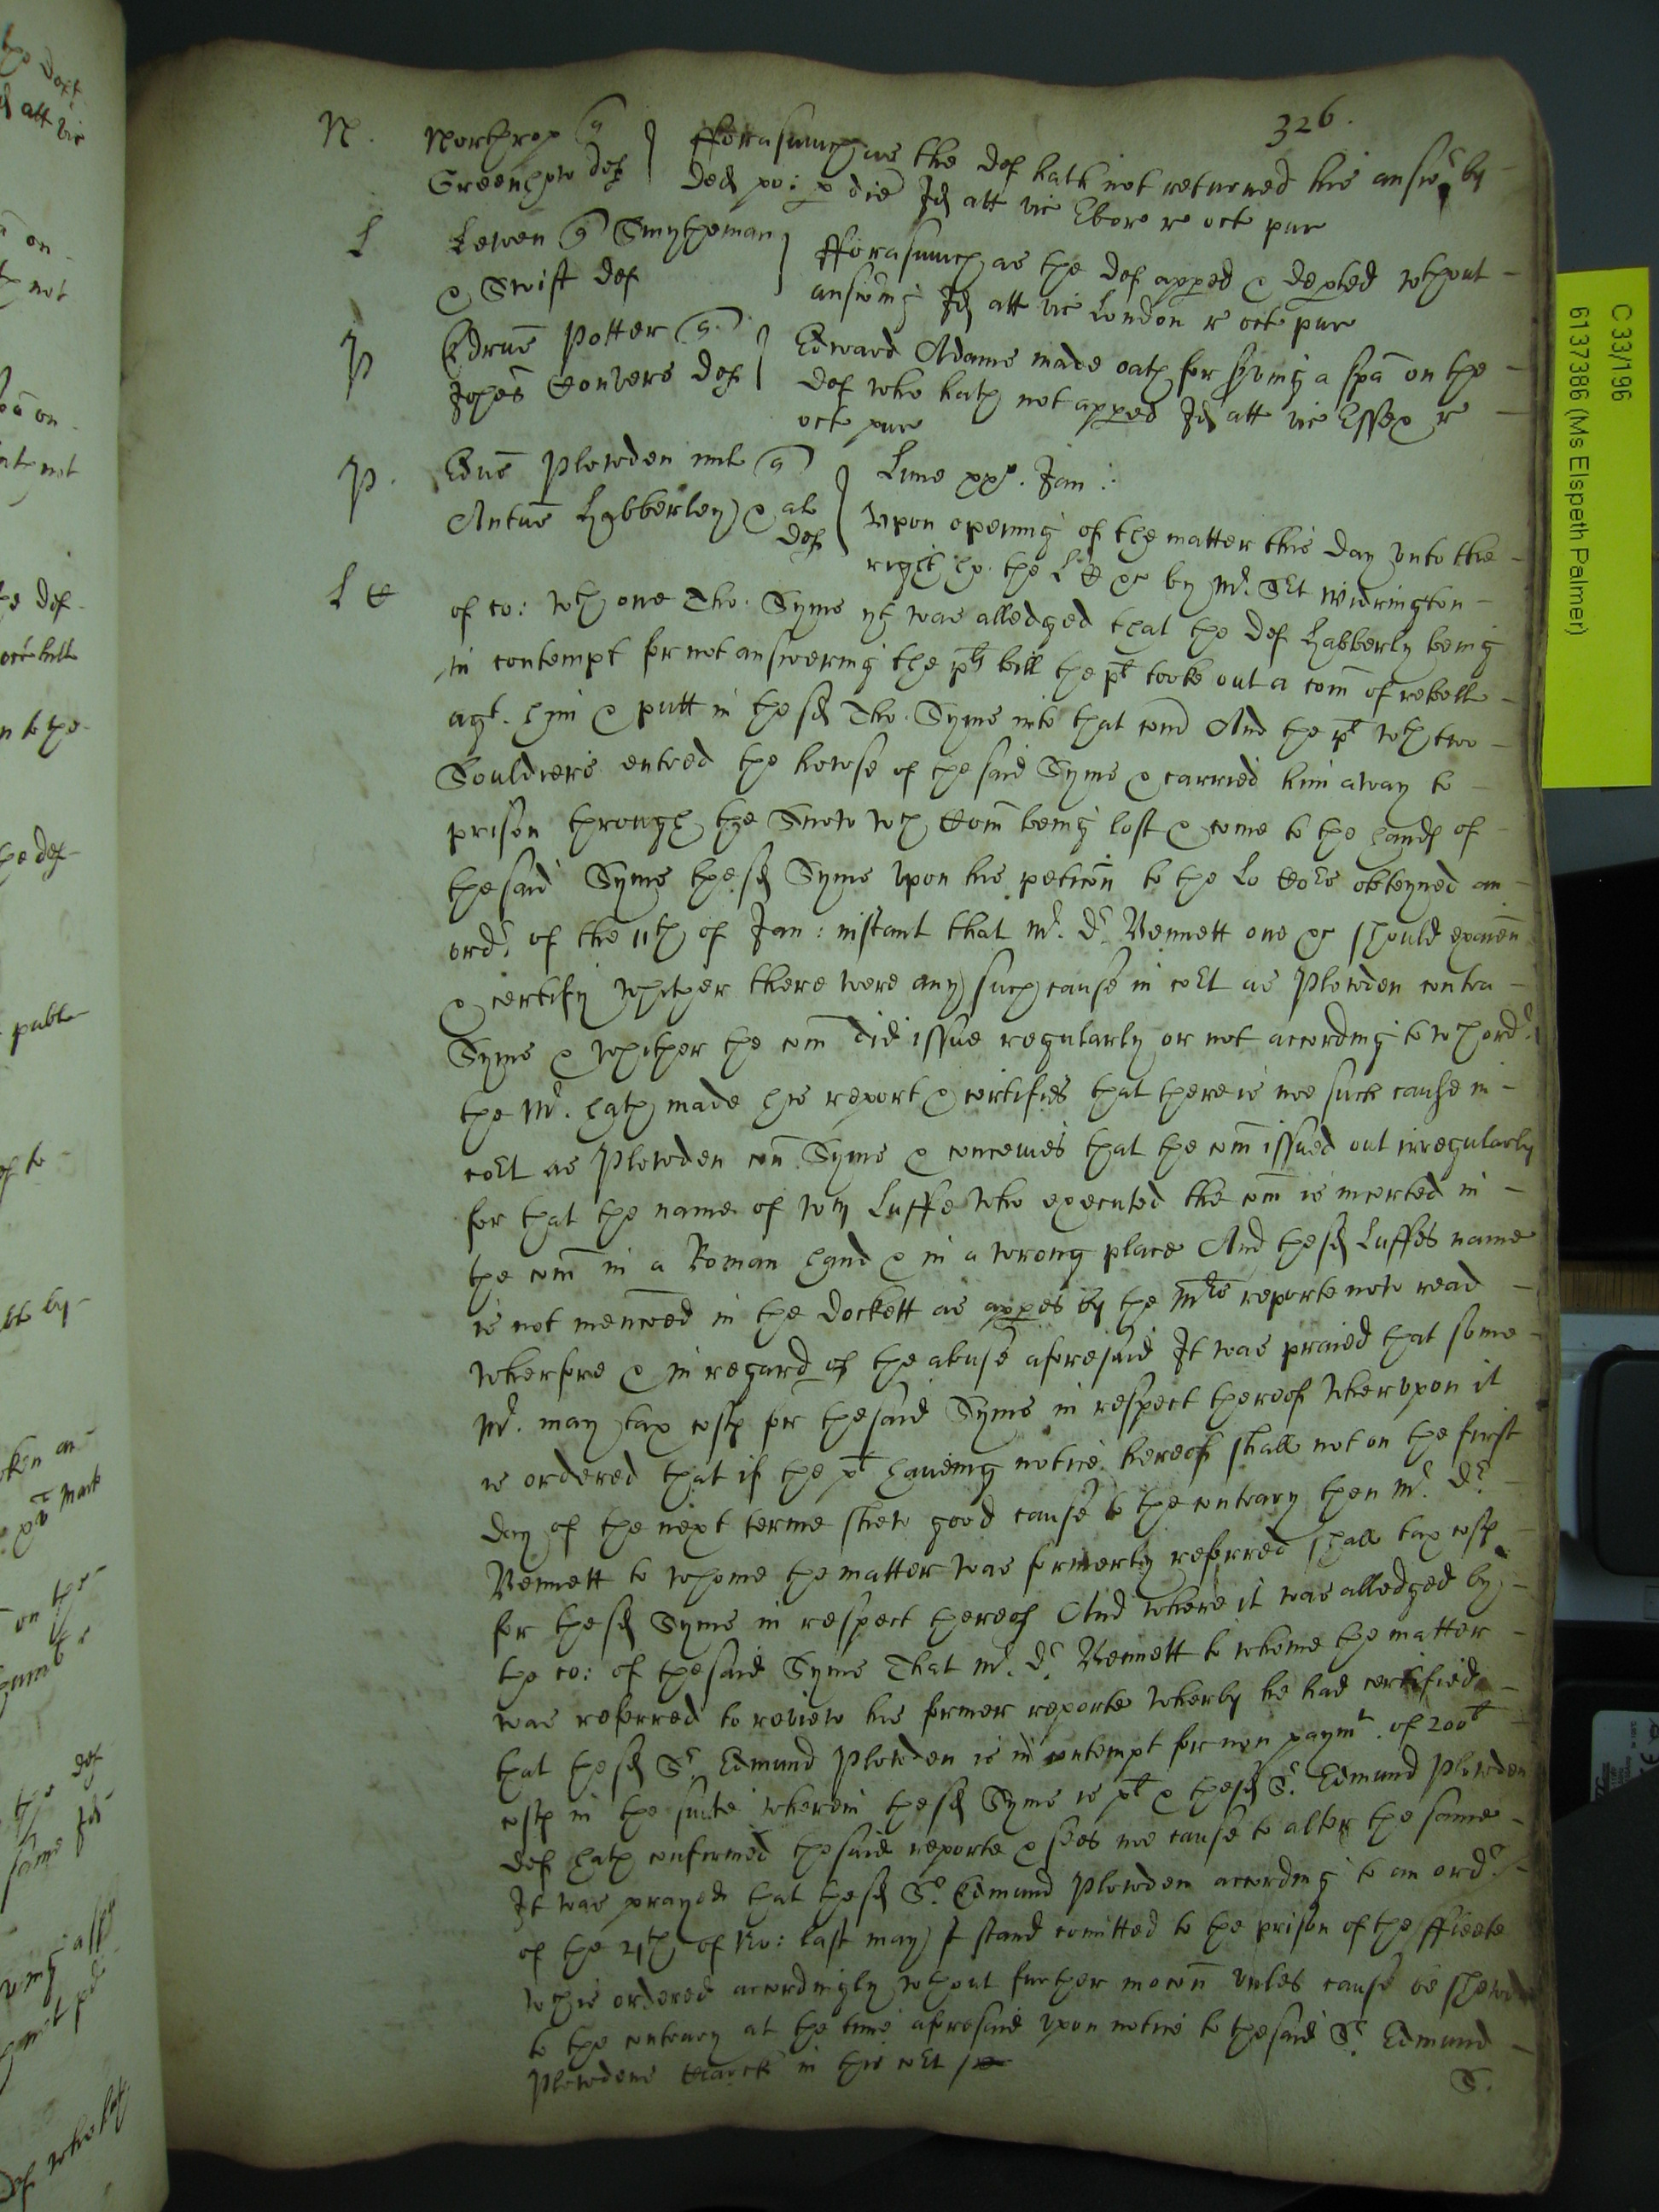 326.
N. Northrop q
Greenhow def
fforasmuch as the def hath not returned his answ:r by
ded po: p die Id att vic Ebor r oct pur
L Lewen q Smytheman
& Swift def
fforasmuch as the def apped & depted wthout
answing Id att vic London r oct pur
P Edrus Potter q
Johes Conyers def
Edward Adams made oath for sving a spa on the
def who hath not apped Id att vic Essex r
oct pur
P. Edus Plowden mil q
Antus Habberley & al
def
Lune xxo. Jan:
Upon opening of the matter this day unto the
L C right ho. the L C &c by Mr. Sit Widrington
of co: wth one Tho. Syms yt was alledged that the def Habberly being
in contempt for not answering the pts bill the pt tooke out a com of rebell
agt. him & putt in the sd Tho. Syms into that com And the pt wth two
Souldiers entred the howse of the said Syms & carried him away to
prison through the Snow wch Com being lost & come to the hands of
the said Syms the sd Syms upon his peticon to the Lo Cors obteyned an
ordr. of the 11th of Jan: instant that Mr. Dr. Bennett one &c should examen
& certify whither there were any such cause in cort as Plowden contra
Syms & whither the com did issue regularly or not according to wch ordr.
the Mr. hath made his report & certifies that there is noe such cause in
cort as Plowden con Syms & conceives that the com issued out irregularly
for that the name of Wm Luffe who executed the com is incerted in
the com in a Roman hand & in a wrong place And the sd Luffes name
is not menconed in the dockett as appes by the Mrs reporte now read
wherfore & in regard of the abuse aforesaid It was praied that some
Mr. may tax costs for the said Syms in respect thereof Wherupon it
is ordered that if the pt haueing notice hereof shall not on the first
day of the next terme shew good cause to the contrary then Mr. Dr.
Bennett to whome the matter was formerly referred shall tax costs
for the sd Syms in respect thereof And where it was alledged by
the co: of the said Syms That Mr. Dr. Bennett to whome the matter
was referred to review his former reporte wherby he had certified
that the sd Sr. Edmund Plowden is in contempt for non paymt. of 200l
costs in the suite wherein the sd Syms is pt & the sd Sr. Edmund Plowden
def hath confirmed the said reporte & sees noe cause to alter the same
It was prayed that the sd Sr. Edmund Plowden according to an ordr.
of the 21th of No: last may stand comitted to the prison of the ffleete
wch is ordered accordingly wthout further mocon unles cause be shewd
to the contrary at the time aforesaid upon notice to the said Sr. Edmund
Plowdens Clarck in this cort
S.
C 33/196
6137386 (Ms Elspeth Palmer)